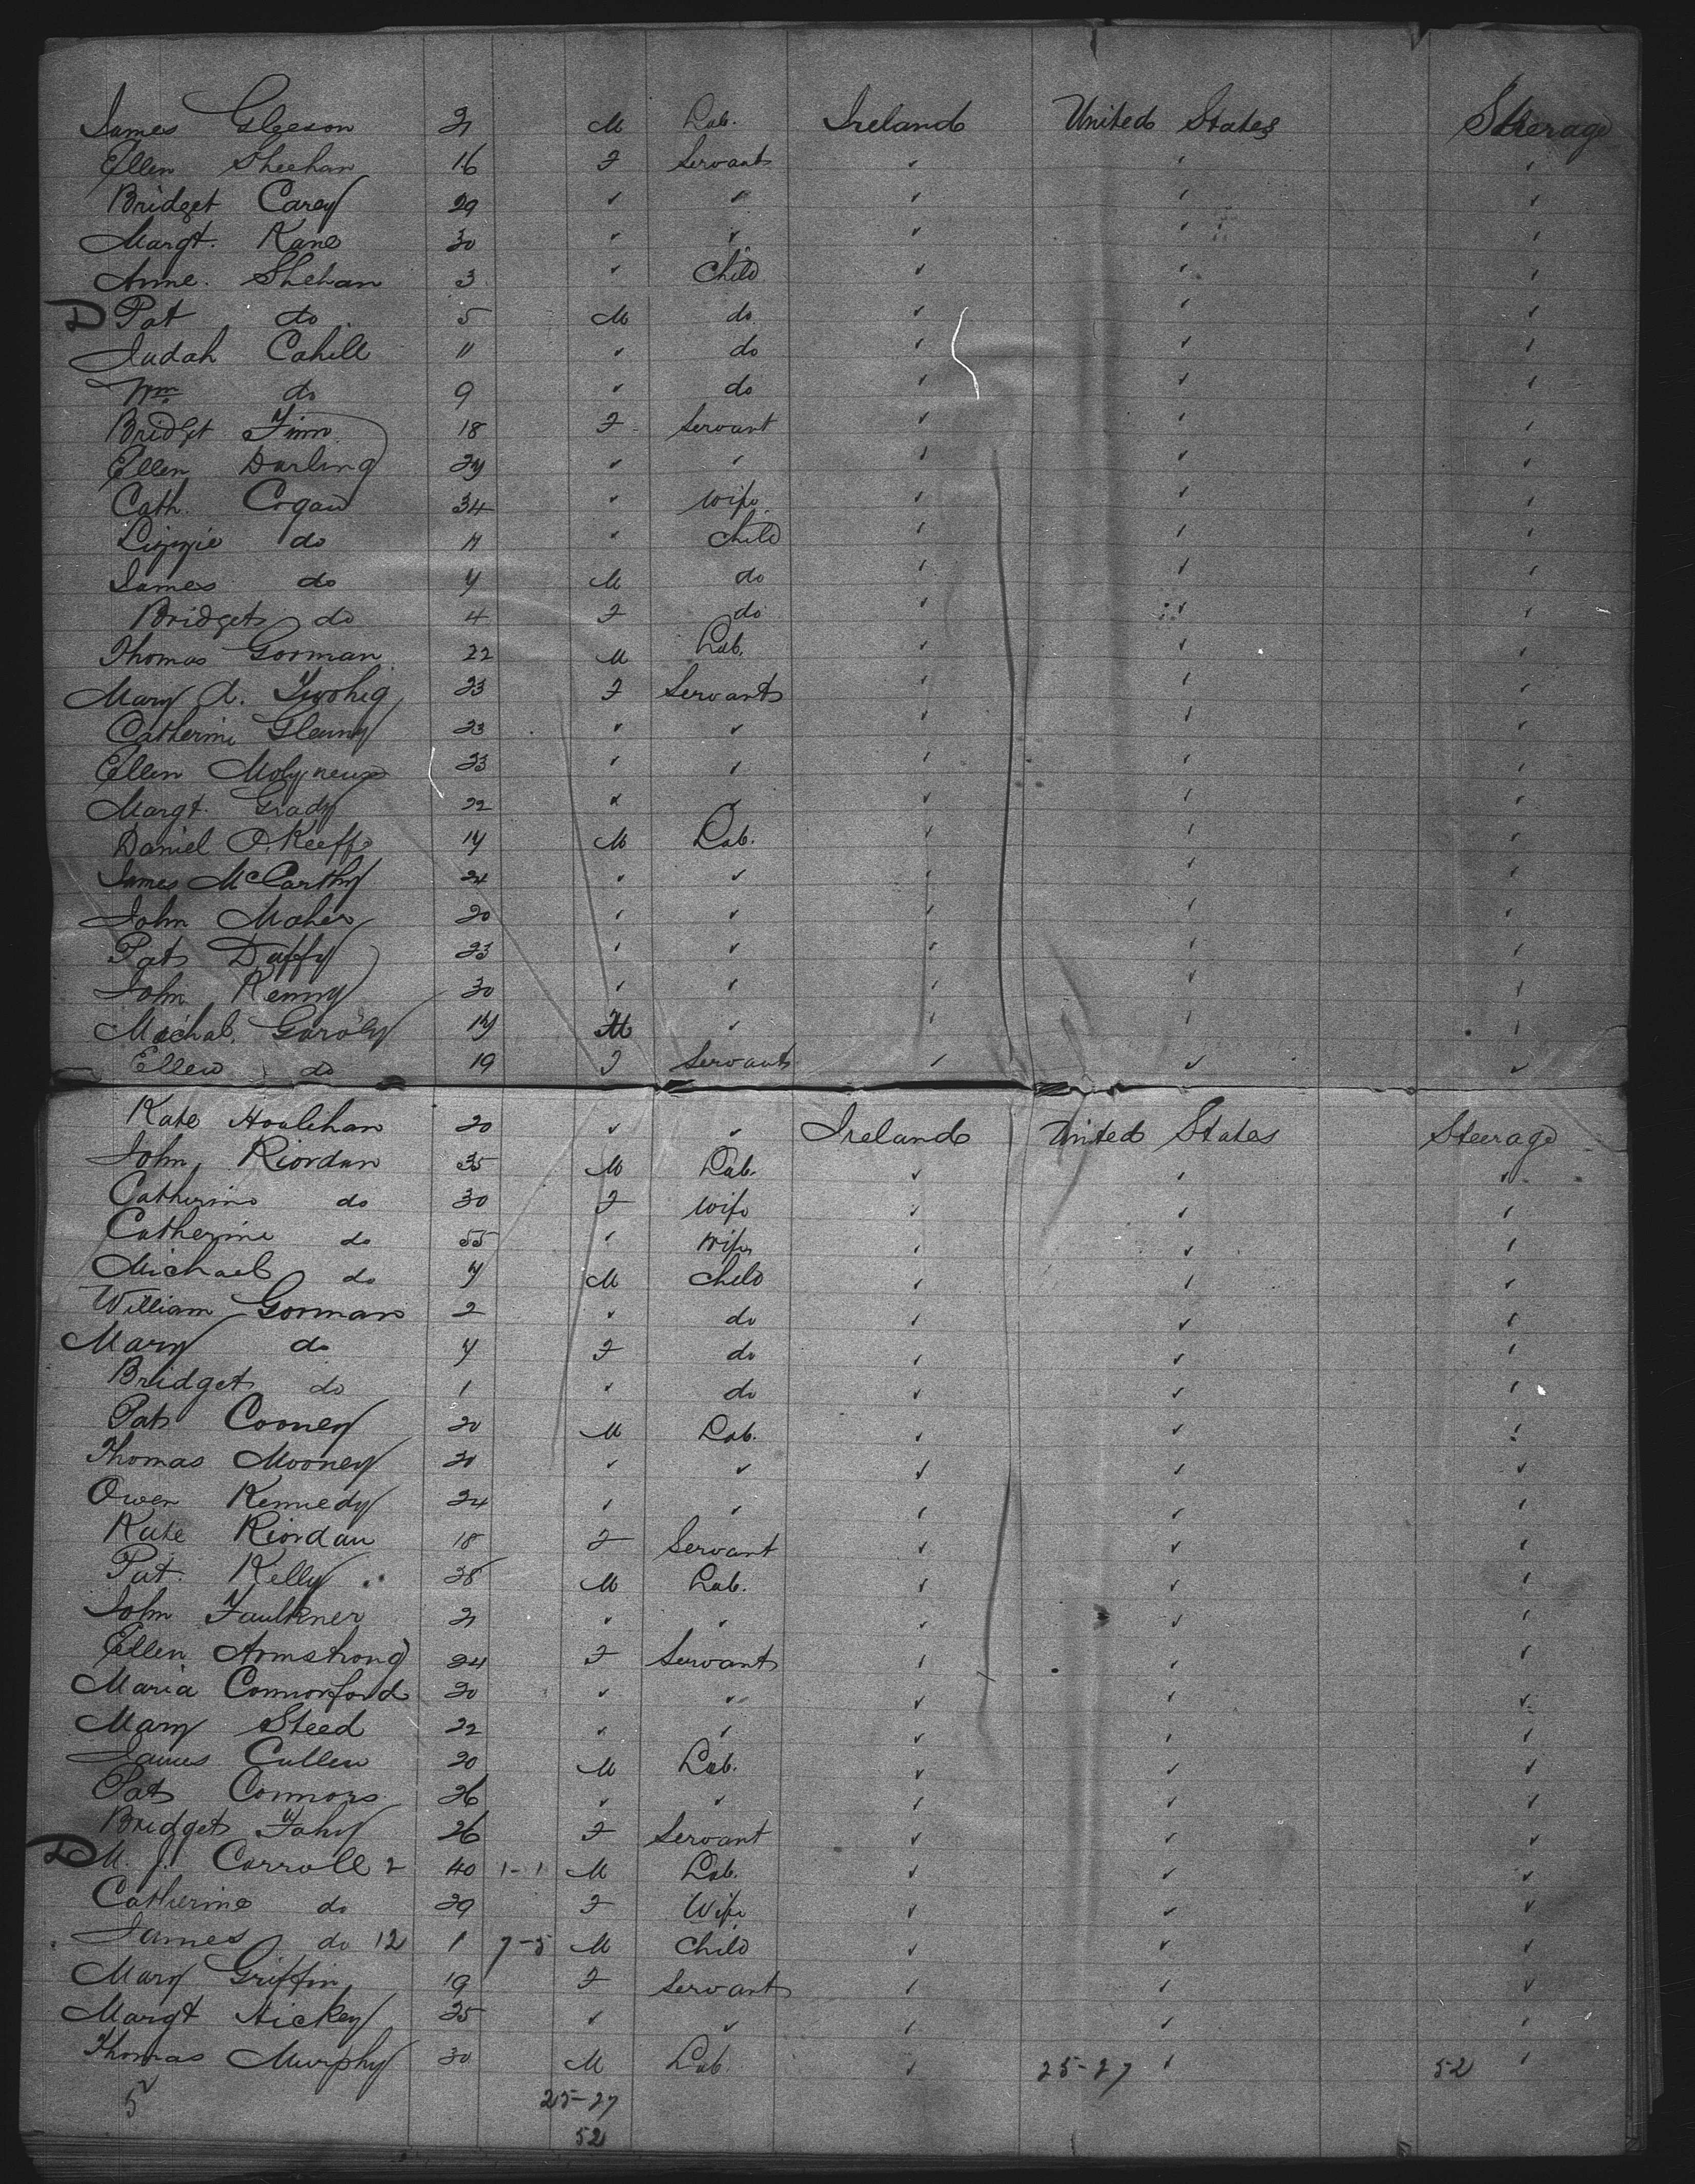 James Gleeson 21 M Lab. Ireland United States Steerage
Ellen Sheehan 16 F Servant ✓ ✓ ✓
Bridget Carey 29 ✓ ✓ ✓ ✓ ✓
Margt. Kane 30 ✓ ✓ ✓ ✓ ✓
Anne. Shehan 3 ✓ Child ✓ ✓ ✓
D Pat do 5 M do ✓ ✓ ✓
Judah Cahill 11 ✓ do ✓ ✓ ✓
Wm. do 9 ✓ do ✓ ✓ ✓
Bridget Finn 18 F Servant ✓ ✓ ✓
Ellen Darling 24 ✓ ✓ ✓ ✓ ✓
Cath. Cogan 34 ✓ Wife ✓ ✓ ✓
Lizzie do 11 ✓ Child ✓ ✓ ✓
James do 7 M do ✓ ✓ ✓
Bridget do 4 F do ✓ ✓ ✓
Thomas Gorman 22 M Lab. ✓ ✓ ✓
Mary A. Twohig 23 F Servant ✓ ✓ ✓
Catherine Glenny 23 ✓ ✓ ✓ ✓ ✓
Ellen Molyneux 23 ✓ ✓ ✓ ✓ ✓
Margt. Grady 22 ✓ ✓ ✓ ✓ ✓
Daniel O.Keeffe 17 M Lab. ✓ ✓ ✓
James McCarthy 24 ✓ ✓ ✓ ✓ ✓
John Maher 20 ✓ ✓ ✓ ✓ ✓
Pat Duffy 23 ✓ ✓ ✓ ✓ ✓
John Kenny 30 ✓ ✓ ✓ ✓ ✓
Michal. 17 M ✓ ✓ ✓ ✓
Ellen do 19 F Servant ✓ ✓ ✓
Kate Houlihan 20 ✓ ✓ Ireland United States Steerage
John Riordan 35 M Lab. ✓ ✓ ✓
Catherine do 30 F Wife ✓ ✓ ✓
Catherine do 55 ✓ Wife ✓ ✓ ✓
Michael do 7 M Child ✓ ✓ ✓
William Gorman 2 ✓ do ✓ ✓ ✓
Mary do 7 F do ✓ ✓ ✓
Bridget do 1 ✓ do ✓ ✓ ✓
Pat Cooney 20 M Lab. ✓ ✓ ✓
Thomas Mooney 20 ✓ ✓ ✓ ✓ ✓
Owen Kennedy 24 ✓ ✓ ✓ ✓ ✓
Kate Riordan 18 F Servant ✓ ✓ ✓
Pat. Kelly 38 M Lab. ✓ ✓ ✓
John Faulkner 21 ✓ ✓ ✓ ✓ ✓
Ellen Armstrong 24 F Servant ✓ ✓ ✓
Maria Comorford 20 ✓ ✓ ✓ ✓ ✓
Mary Steed 22 ✓ ✓ ✓ ✓ ✓
James Cullen 20 M Lab. ✓ ✓ ✓
Pat Connors 26 ✓ ✓ ✓ ✓ ✓
Bridget Fahy 26 F Servant ✓ ✓ ✓
D M. J. Carroll 2 40 1-1 M Lab. ✓ ✓ ✓
Catherine do 29 F Wife ✓ ✓ ✓
James do 12 1 7-5 M Child ✓ ✓ ✓
Mary Griffin 19 F Servant ✓ ✓ ✓
Margt Hickey 25 ✓ ✓ ✓ ✓ ✓
Thomas Murphy 30 M Lab. ✓ 25-27 ✓ 52 ✓
5 25-27
52